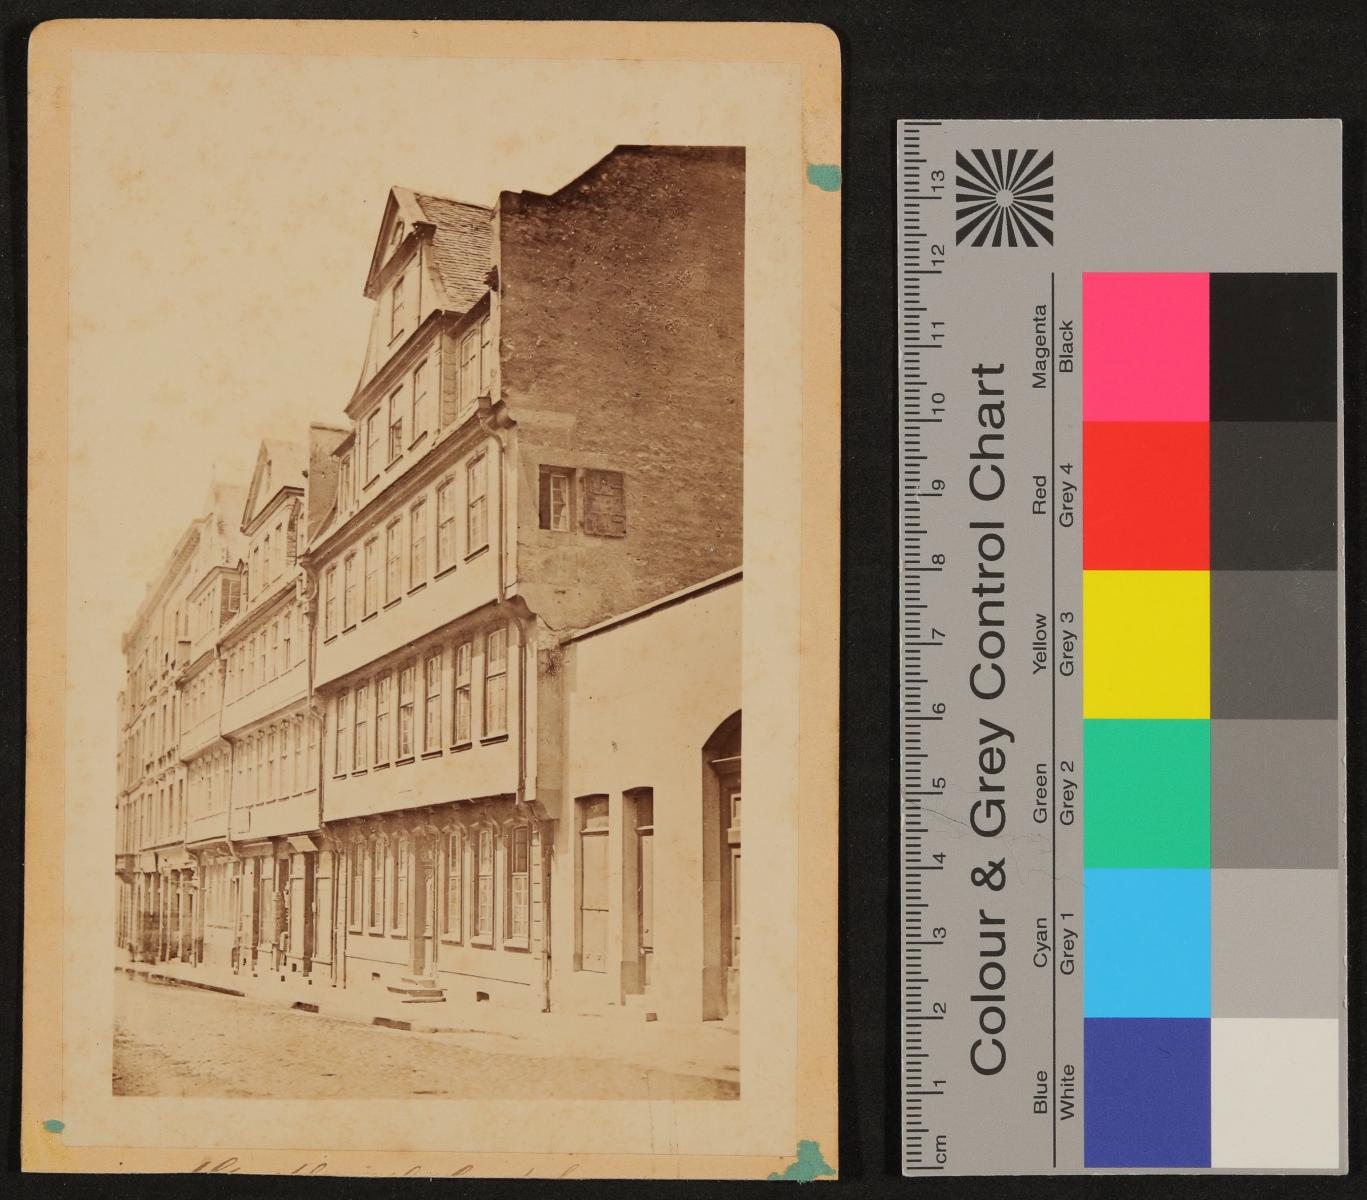 Colour & Grey Control Chart
Blue Cyan Green Yellow Red Magenta
White Grey 1 Grey 2 Grey 3 Grey 4 Black
cm 1 2 3 4 5 6 7 8 9 10 11 12 13